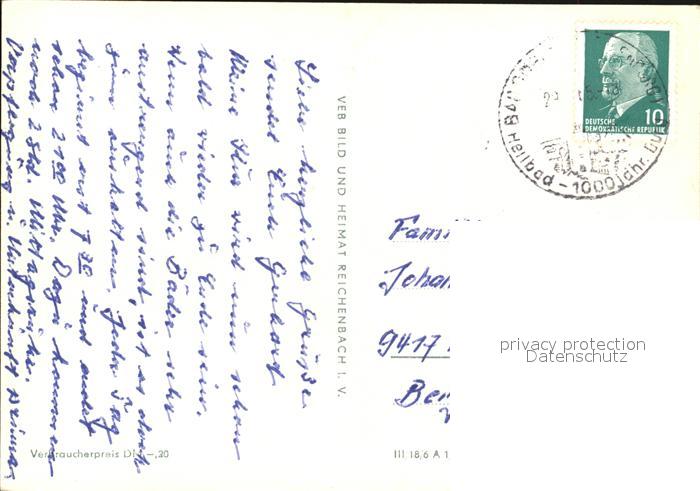 Liebe herzliche Grüße
sendet Euch Gerhard
Meine Kur wird nun schon
bald wieder zu Ende sein.
Wenn auch die Bäder sehr
anstrengend sind, ist es doch
zum aushalten. Jeder Tag
beginnt erst 7 30 und endet
schon 21 00 Uhr. Dazu kommen
noch 2 Std. Mittagsruhe.
Verpflegung u. Unterkunft prima
VEB BILD UND HEIMAT REICHENBACH I. V.
Verbraucherpreis DM -,20
III 18/6 A 1
DEUTSCHE
DEMOKRATISCHE REPUBLIK
10
BAD
Heilbad - 1000jähr.
Fami
Johan
9417
privacy protection
Datenschutz